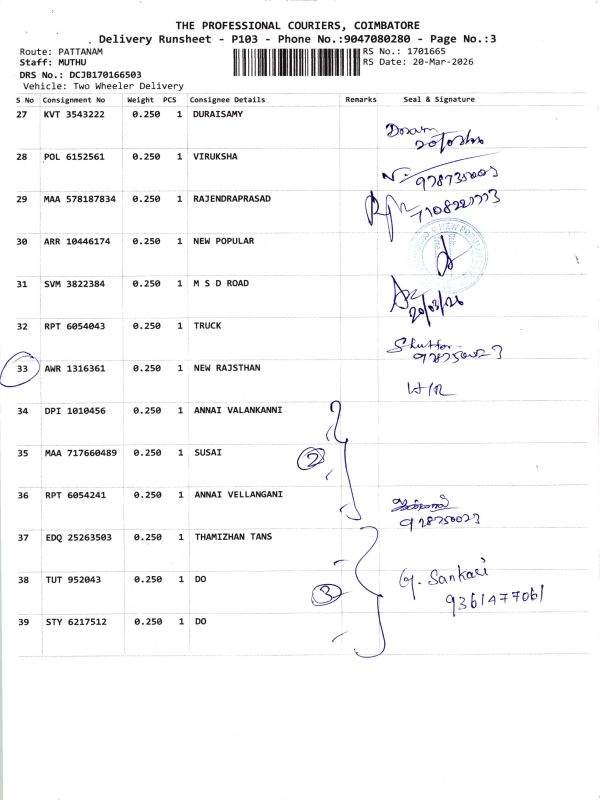 THE PROFESSIONAL COURIERS, COIMBATORE
Delivery Runsheet - P103 - Phone No.:9047080280 - Page No.:3
Route: PATTANAM
RS No.: 1701665
Staff: MUTHU
RS Date: 20-Mar-2026
DRS No.: DCJB170166503
Vehicle: Two Wheeler Delivery
S No Consignment No Weight PCS Consignee Details Remarks Seal & Signature
27 KVT 3543222 0.250 1 DURAISAMY
28 POL 6152561 0.250 1 VIRUKSHA
29 MAA 578187834 0.250 1 RAJENDRAPRASAD
30 ARR 10446174 0.250 1 NEW POPULAR
31 SVM 3822384 0.250 1 M S D ROAD
20/03/26
32 RPT 6054043 0.250 1 TRUCK
33 AWR 1316361 0.250 1 NEW RAJSTHAN
34 DPI 1010456 0.250 1 ANNAI VALANKANNI
35 MAA 717660489 0.250 1 SUSAI 2
36 RPT 6054241 0.250 1 ANNAI VELLANGANI
37 EDQ 25263503 0.250 1 THAMIZHAN TANS
38 TUT 952043 0.250 1 DO 3 G. Sankari
9361477061
39 STY 6217512 0.250 1 DO